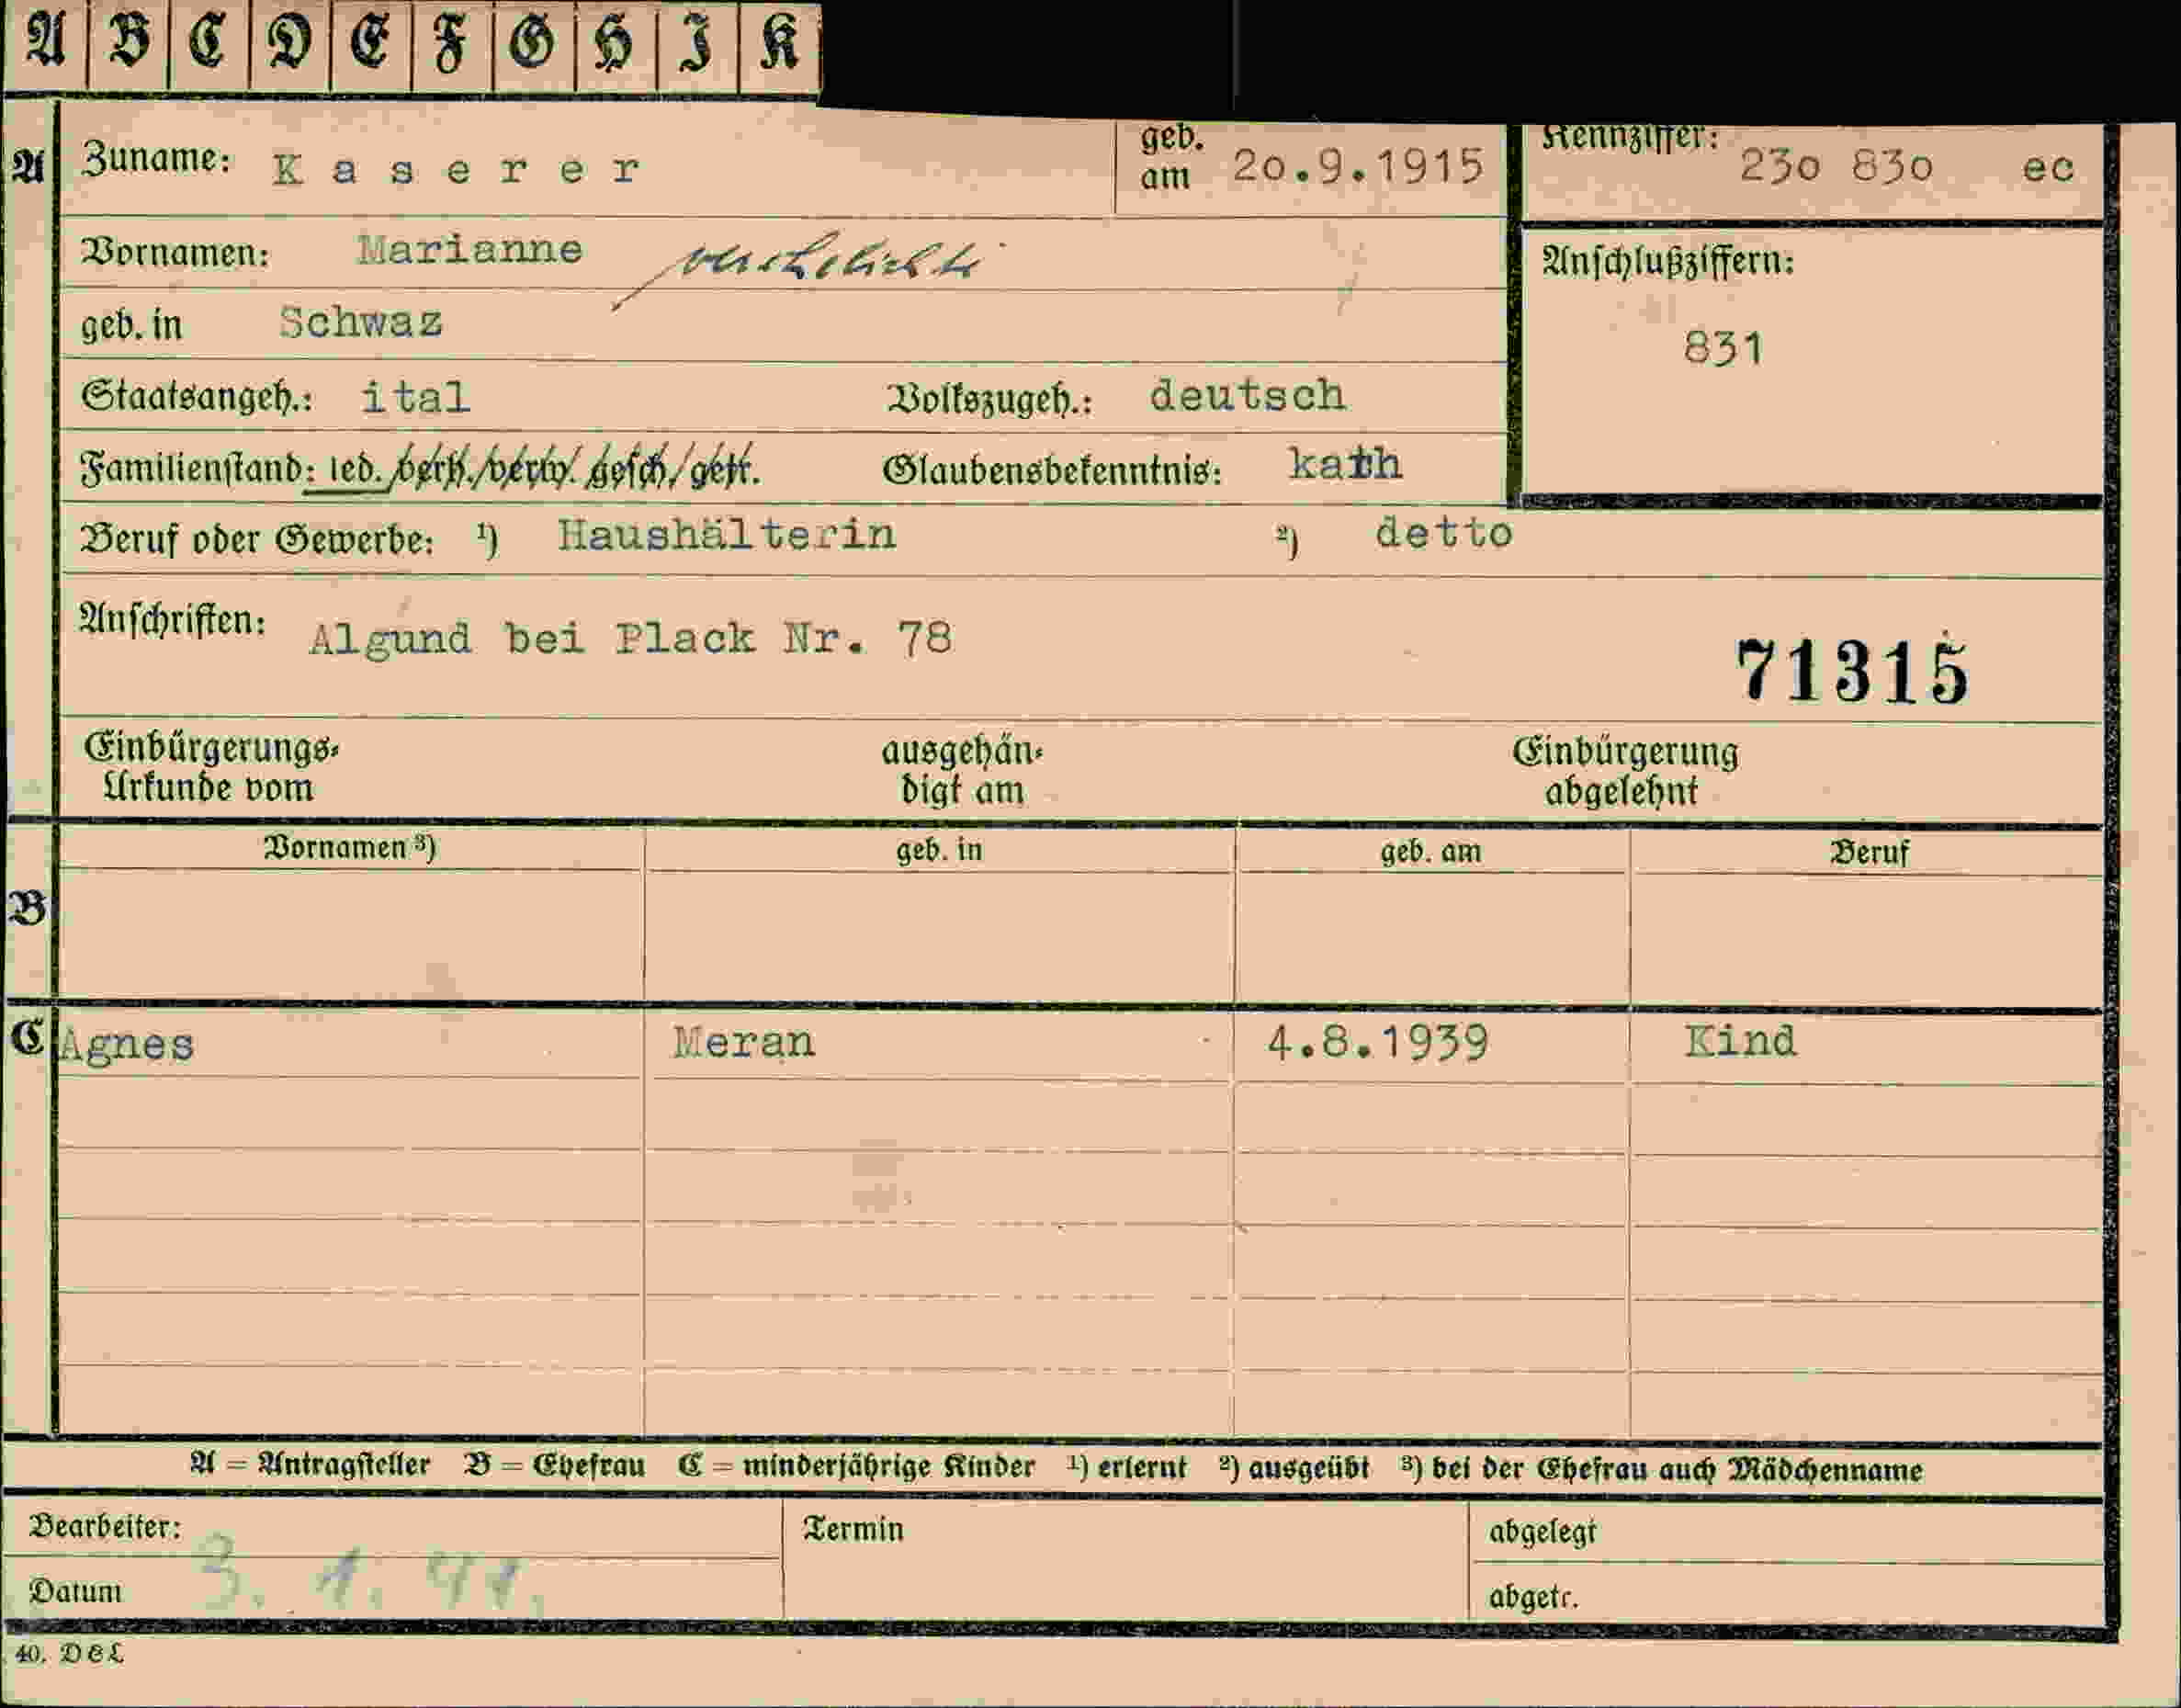 A B C D E F G H I K
A Zuname: Kaserer geb. am 20.9.1915 Kennziffer: 230 830 ec
Vornamen: Marianne verehelichte
Anschlußziffern:
geb. in Schwaz
831
Staatsangeh.: ital Volkszugeh.: deutsch
Familienstand: led./verh./verw./gesch./getr. Glaubensbekenntnis: kath
Beruf oder Gewerbe: 1) Haushälterin 2) detto
Anschriften: Algund bei Plack Nr. 78
71315
Einbürgerungs- ausgehän- Einbürgerung
Urkunde vom digt am abgelehnt
Vornamen 3) geb. in geb. am Beruf
B
C Agnes Meran 4.8.1939 Kind
A = Antragsteller B = Ehefrau C = minderjährige Kinder 1) erlernt 2) ausgeübt 3) bei der Ehefrau auch Mädchenname
Bearbeiter: Termin abgelegt
Datum 3. 1. 41. abgetr.
40. DEL